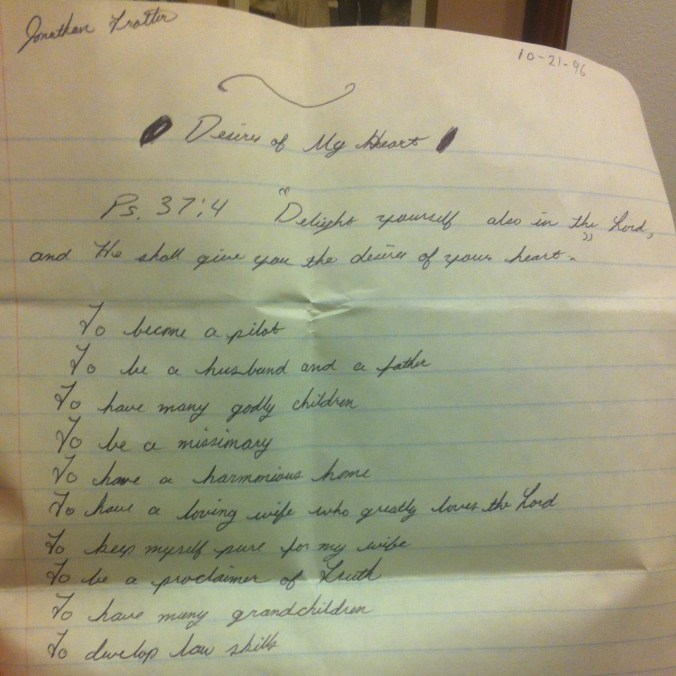 Jonathan Trotter
10-21-96
Desires of My Heart
Ps. 37:4 "Delight yourself also in the Lord,
and He shall give you the desires of your heart."
To become a pilot
To be a husband and a father
To have many godly children
To be a missionary
To have a harmonious home
To have a loving wife who greatly loves the Lord
To keep myself pure for my wife
To be a proclaimer of Truth
To have many grandchildren
To develop law skills